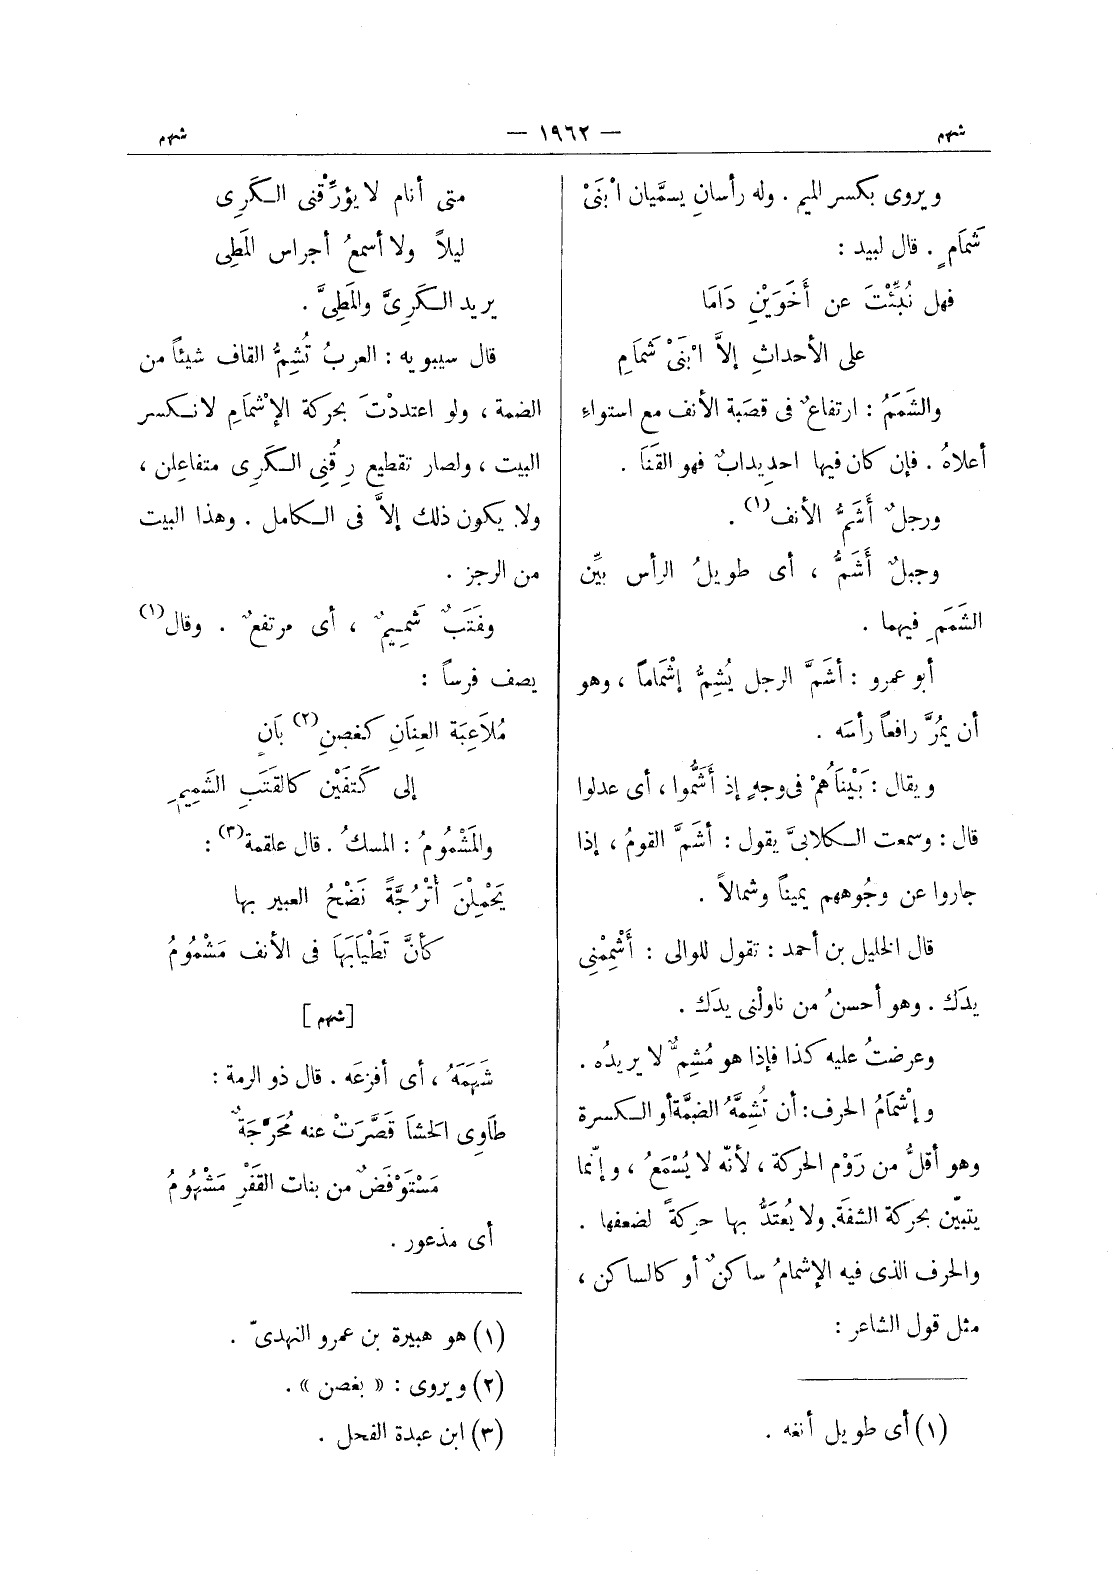 شهم
— ١٩٦٢ —
شهم
ويروى بكسر الميم . وله رأسانِ يسمَّيان ابْنَىْ
شَمَامٍ . قال لبيد :
فهل نُبِّئْتَ عن أَخَوَيْنِ دَامَا
على الأحداثِ إلاَّ ابْنَىْ شَمَامِ
والشَمَمُ : ارتفاعٌ فى قصَبة الأنف مع استواءِ
أعلاهُ . فإن كان فيها احدِيدابٌ فهو القَنَا .
ورجلٌ أَشَمُّ الأنف(١) .
وجبلٌ أَشَمُّ ، أى طويلُ الرأس بيِّن
الشَمَمِ فيهما .
أبو عمرو : أشَمَّ الرجل يُشِمُّ إشْمَاماً ، وهو
أن يمُرَّ رافعاً رأسَه .
ويقال : بَيْنَاهُمْ فى وجهٍ إذ أَشَمُّوا ، أى عدلوا
قال : وسمعت الكلابىَّ يقول : أشَمَّ القومُ ، إذا
جاروا عن وجُوههم يميناً وشمالاً .
قال الخليل بن أحمد : تقول للوالى : أَشْمِمْنِى
يدَك . وهو أحسنُ من ناولْنى يدَك .
وعرضتُ عليه كذا فإذا هو مُشِمٌّ لا يريدُه .
وإشْمَامُ الحرف : أن تُشِمَّهُ الضمَّة أو الكسرة
وهو أقلُّ من رَوْم الحركة ، لأنّه لا يُسْمَعُ ، وإنّما
يتبيّن بحركة الشفَة. ولا يُعتَدُّ بها حركةً لضعفها .
والحرف الذى فيه الإشمامُ ساكنٌ أو كالساكن ،
مثل قول الشاعر :
(١) أى طويل أنفه .
متى أنام لا يؤرِّقْنى الكَرِى
ليلاً ولا أسمعُ أجراس المَطِى
يريد الكَرِىَّ والمَطِىَّ .
قال سيبويه : العربُ تُشِمُّ القاف شيئاً من
الضمة ، ولو اعتددْتَ بحركة الإشْمَامِ لانكسر
البيت ، ولصار تقطيع رِقُنِى الكَرِى متفاعلن ،
ولا يكون ذلك إلاَّ فى الكامل . وهذا البيت
من الرجز .
وقَتَبٌ شَمِيمٌ ، أى مرتفعٌ . وقال(١)
يصف فرساً :
مُلاَعِبَة العِنَانِ كغصنِ(٢) بَانٍ
إلى كَتَفَيْن كالقَتَبِ الشَمِيمِ
والمَشْمُومُ : المسكُ . قال علقمة(٣) :
يَحْمِلْنَ أُتْرُجَّةً نَضْحُ العبير بها
كأنَّ تَطْيَابَهَا فى الأنف مَشْمُومُ
[شهم]
شَهَمَهُ ، أى أفزعَه . قال ذو الرمة :
طَاوِى الحَشَا قَصَّرَتْ عنه مُحَرَّجَةٌ
مَسْتَوْفَضٌ من بنات القَفْرِ مَشْهُومُ
أى مذعور .
(١) هو هبيرة بن عمرو النهدىّ .
(٢) ويروى : « بغصن » .
(٣) ابن عبدة الفحل .